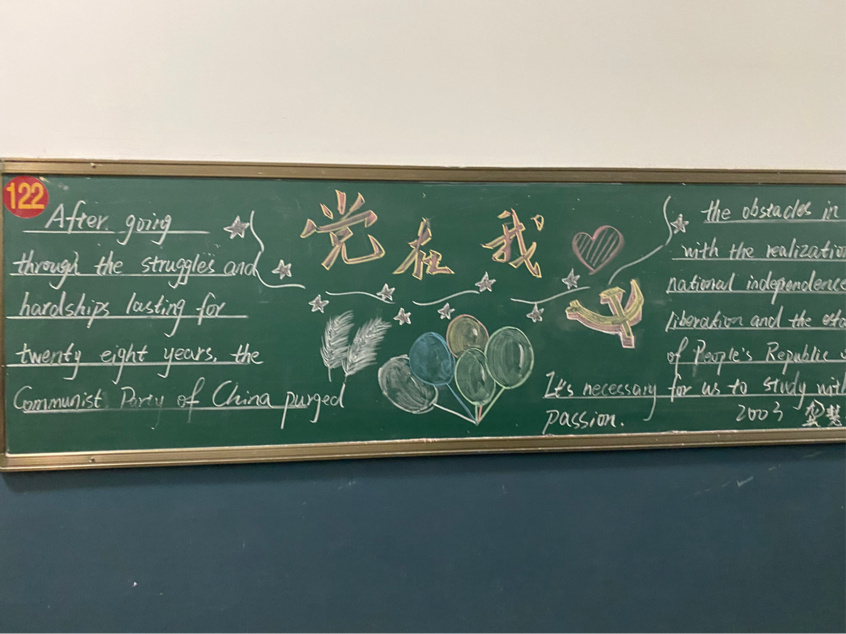 122
After going
through the struggles and
hardships lasting for
twenty eight years, the
Communist Party of China purged
党在我
the obstacles in
with the realizatio
national independence
liberation and the esta
of People's Republic
It's necessary for us to study with
passion.
2003